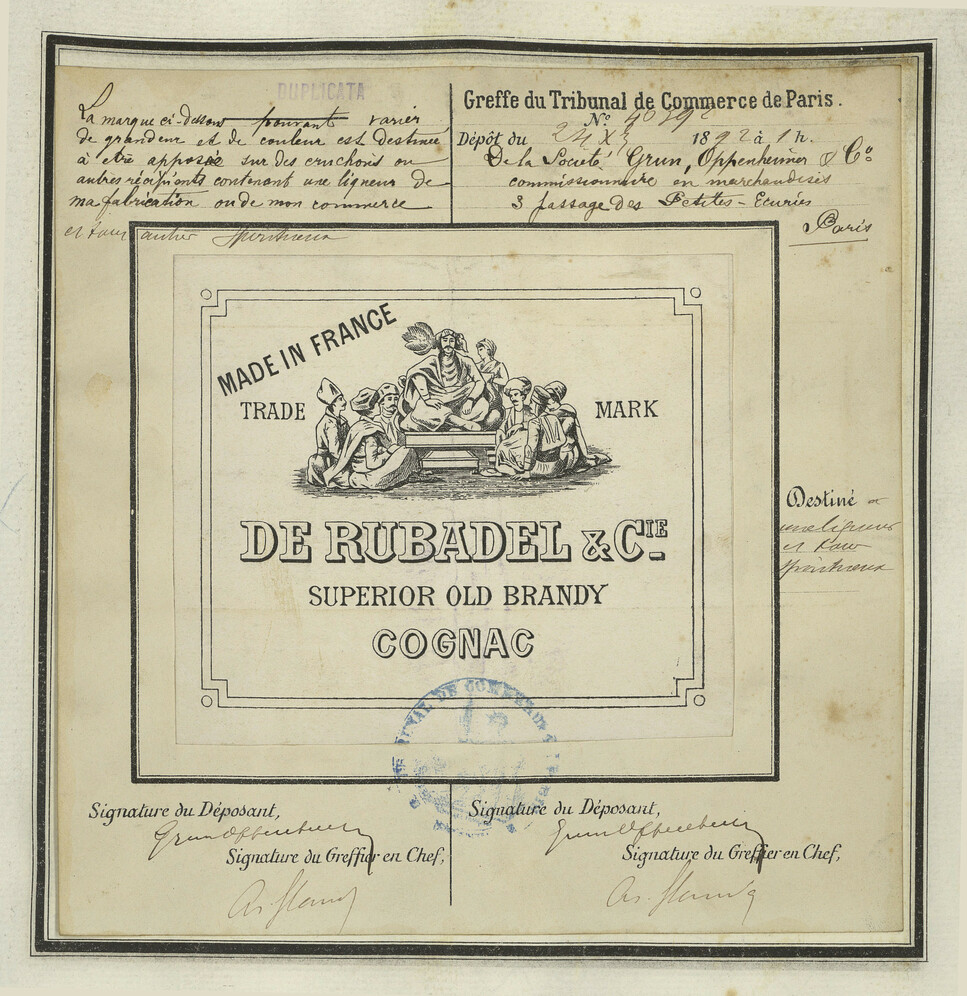 DUPLICATA
La marque ci-dessous pouvant varier
de grandeur et de couleur est destinée
à être apposée sur des cruchons ou
autres récipients contenant une liqueur de
ma fabrication ou de mon commerce
et tous autres spiritueux
Greffe du Tribunal de Commerce de Paris.
N° 40392
Dépôt du 24 X 1892 à 1 h.
De la Société Grun, Oppenheimer & Cie
commissionnaire en marchandises
3 passage des Petites-Ecuries
Paris
MADE IN FRANCE
TRADE MARK
DE RUBADEL & CIE
SUPERIOR OLD BRANDY
COGNAC
Destiné à
une liqueur
et tous
spiritueux
TRIBUNAL DE COMMERCE
Signature du Déposant,
Grun Oppenheimer
Signature du Greffier en Chef,
Signature du Déposant,
Grun Oppenheimer
Signature du Greffier en Chef,